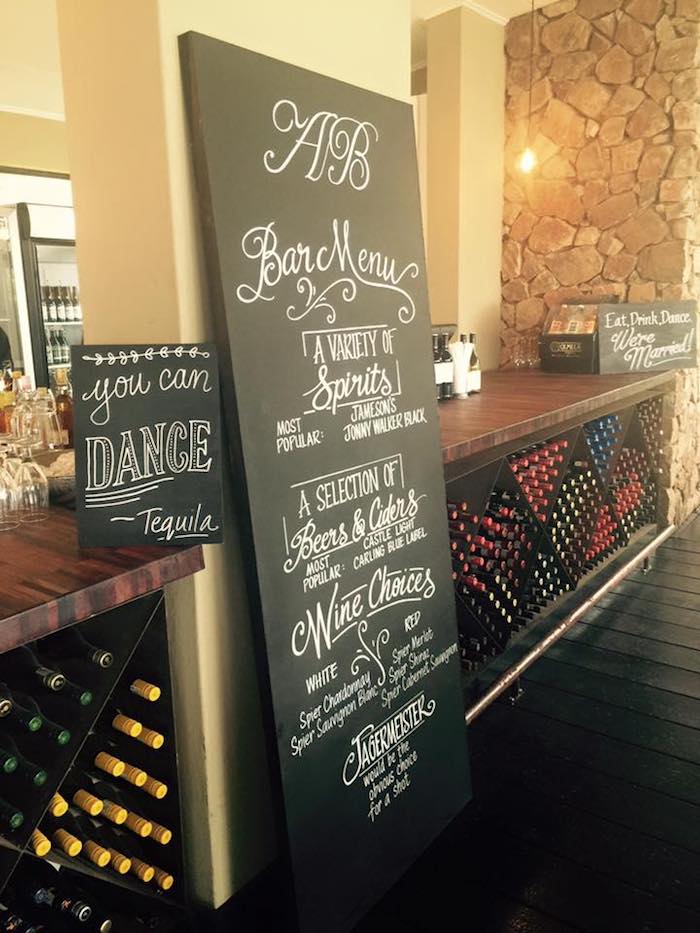 AB
Bar Menu
A VARIETY OF
Spirits
MOST POPULAR:
JAMESON'S
JONNY WALKER BLACK
A SELECTION OF
Beers & Ciders
MOST POPULAR:
CASTLE LIGHT
CARLING BLUE LABEL
Wine Choices
WHITE
Spier Chardonnay
Spier Sauvignon Blanc
RED
Spier Merlot
Spier Shiraz
Spier Cabernet Sauvignon
JAGERMEISTER
would be the
obvious choice
for a shot
you can
DANCE
- Tequila
Eat, Drink, Dance.
We're
Married!
OLMECA